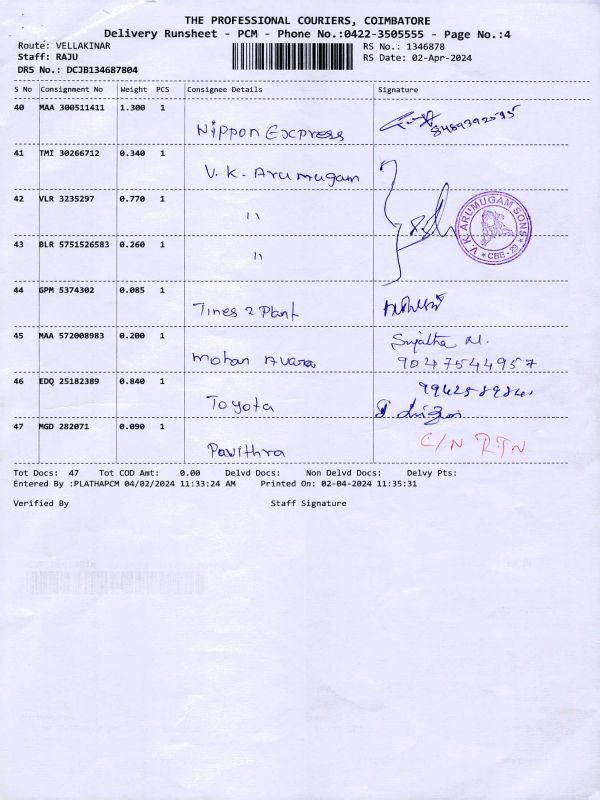 THE PROFESSIONAL COURIERS, COIMBATORE
Delivery Runsheet - PCM - Phone No.:0422-3505555 - Page No.:4
Route: VELLAKINAR RS No.: 1346878
Staff: RAJU RS Date: 02-Apr-2024
DRS No.: DCJB134687804
S No Consignment No Weight PCS Consignee Details Signature
40 MAA 300511411 1.300 1
Nippon Express
41 TMI 30266712 0.340 1
V. K. Arumugam
42 VLR 3235297 0.770 1
"
V.K.ARUMUGAM SONS * CBE - 29 *
43 BLR 5751526583 0.260 1
"
44 GPM 5374302 0.085 1
Tines 2 Plant
45 MAA 572008983 0.200 1
Sujatha M.
Mohan Avara 9047544957
46 EDQ 25182389 0.840 1
Toyota
47 MGD 282071 0.090 1
C/N RTN
Pavithra
Tot Docs: 47 Tot COD Amt: 0.00 Delvd Docs: Non Delvd Docs: Delvy Pts:
Entered By :PLATHAPCM 04/02/2024 11:33:24 AM Printed On: 02-04-2024 11:35:31
Verified By Staff Signature